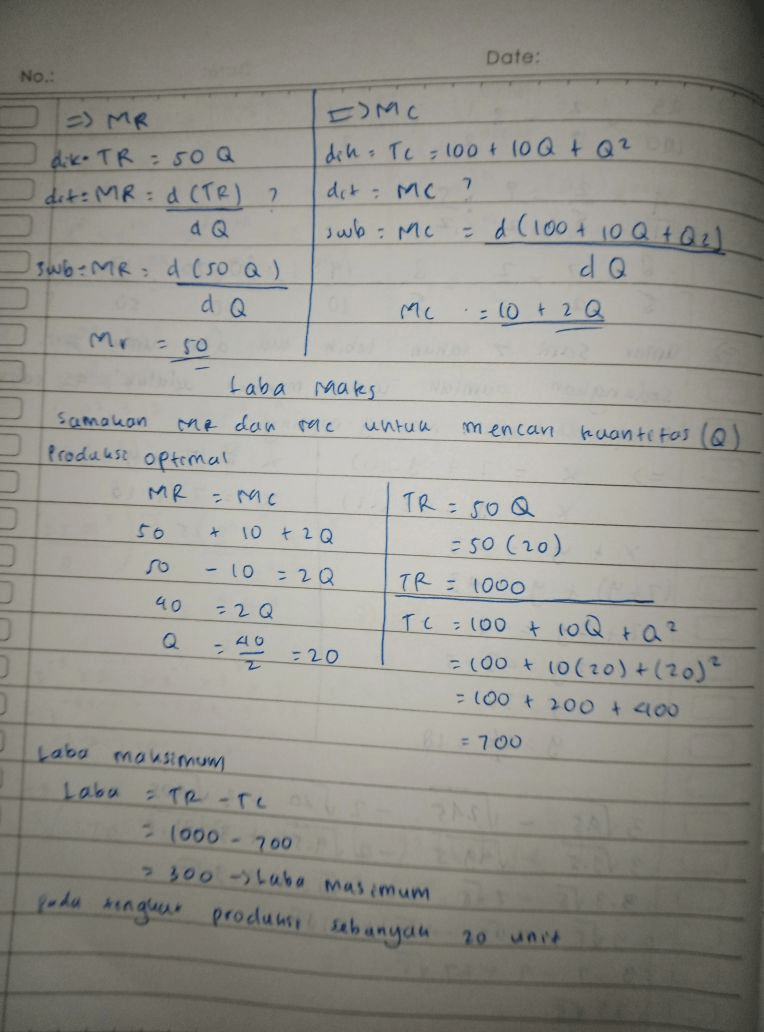 No.:
Date:
=> MR
dik = TR = 50 Q
dit = MR = d (TR) ?
dQ
swb = MR = d (50 Q)
dQ
Mr = 50
=> MC
dik = TC = 100 + 10Q + Q²
dit = MC ?
swb = MC = d (100 + 10 Q + Q2)
dQ
MC = 10 + 2 Q
Laba Maks
Samakan MR dan MC untuk mencari kuantitas (Q)
Produksi optimal
MR = MC
50 + 10 + 2Q
50 - 10 = 2Q
40 = 2Q
Q = 40/2 = 20
TR = 50 Q
= 50 (20)
TR = 1000
TC = 100 + 10Q + Q²
= 100 + 10(20) + (20)²
= 100 + 200 + 400
= 700
Laba maksimum
Laba = TR - TC
= 1000 - 700
= 300 -> Laba masimum
pada produksi sebanyak 20 unit